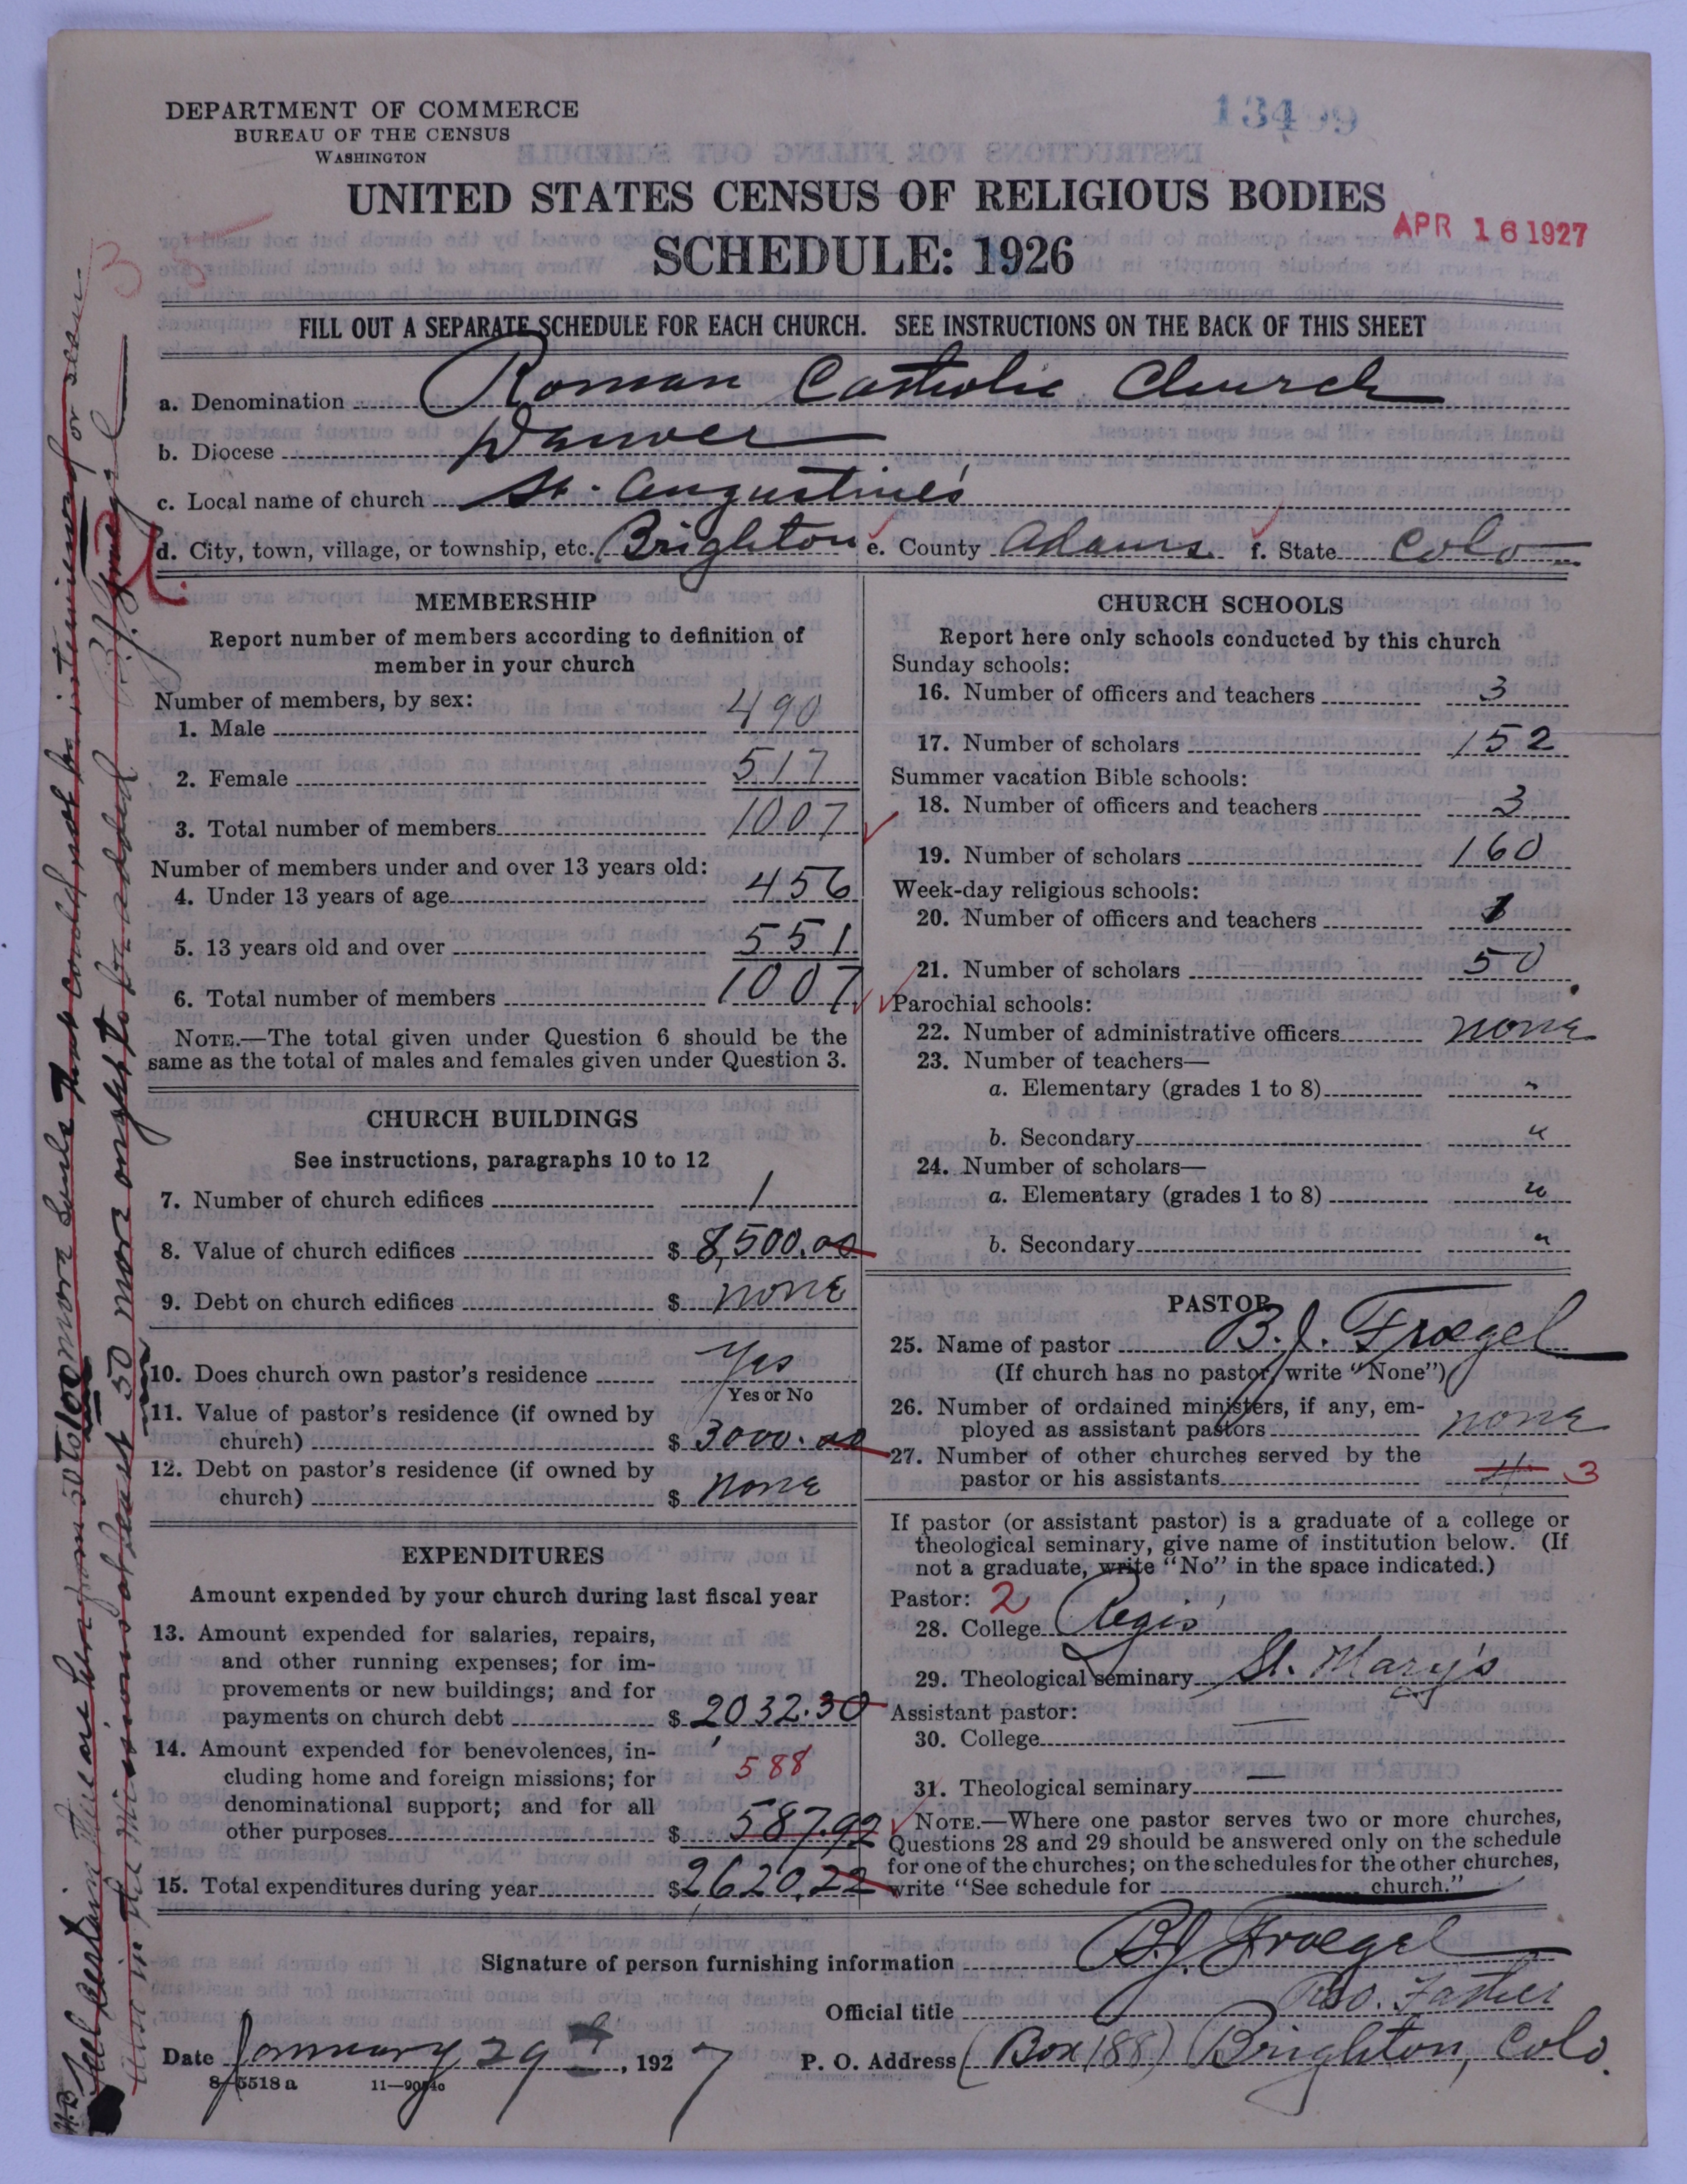 DEPARTMENT OF COMMERCE
BUREAU OF THE CENSUS
WASHINGTON
UNITED STATES CENSUS OF RELIGIOUS BODIES
APR 16 1927
SCHEDULE: 1926
FILL OUT A SEPARATE SCHEDULE FOR EACH CHURCH. SEE INSTRUCTIONS ON THE BACK OF THIS SHEET
a. Denomination Roman Catholic Church
b. Diocese Denver
c. Local name of church St. Augustine's
d. City, town, village, or township, etc. Brighton e. County Adams f. State Colo
MEMBERSHIP
Report number of members according to definition of
member in your church
Number of members, by sex:
1. Male 490
2. Female 517
3. Total number of members 1007
Number of members under and over 13 years old:
4. Under 13 years of age 456
5. 13 years old and over 551
6. Total number of members 1007
NOTE.—The total given under Question 6 should be the
same as the total of males and females given under Question 3.
CHURCH BUILDINGS
See instructions, paragraphs 10 to 12
7. Number of church edifices 1
8. Value of church edifices $ 8,500.00
9. Debt on church edifices $ none
10. Does church own pastor's residence Yes
Yes or No
11. Value of pastor's residence (if owned by
church) $ 3000.00
12. Debt on pastor's residence (if owned by
church) $ none
EXPENDITURES
Amount expended by your church during last fiscal year
13. Amount expended for salaries, repairs,
and other running expenses; for im-
provements or new buildings; and for
payments on church debt $ 2032.30
14. Amount expended for benevolences, in-
cluding home and foreign missions; for 588
denominational support; and for all
other purposes $ 587.92
15. Total expenditures during year $2620.22
CHURCH SCHOOLS
Report here only schools conducted by this church
Sunday schools:
16. Number of officers and teachers 3
17. Number of scholars 152
Summer vacation Bible schools:
18. Number of officers and teachers 3
19. Number of scholars 160
Week-day religious schools:
20. Number of officers and teachers 1
21. Number of scholars 50
Parochial schools:
22. Number of administrative officers none
23. Number of teachers—
a. Elementary (grades 1 to 8) "
b. Secondary "
24. Number of scholars—
a. Elementary (grades 1 to 8) "
b. Secondary "
PASTOR
25. Name of pastor B.J. Froegel
(If church has no pastor, write "None")
26. Number of ordained ministers, if any, em-
ployed as assistant pastors none
27. Number of other churches served by the
pastor or his assistants 4 3
If pastor (or assistant pastor) is a graduate of a college or
theological seminary, give name of institution below. (If
not a graduate, write "No" in the space indicated.)
Pastor: 2
28. College Regis'
29. Theological seminary St. Mary's
Assistant pastor:
30. College —
31. Theological seminary —
NOTE.—Where one pastor serves two or more churches,
Questions 28 and 29 should be answered only on the schedule
for one of the churches; on the schedules for the other churches,
write "See schedule for church."
Signature of person furnishing information B.J. Froegel
Official title Father
Date January 29, 1927 P. O. Address (Box 188) Brighton, Colo.
8—5518 a
N.B. Feel certain that are here from 50 to 100 more souls that could not be interviewed or seen
also in the missions at least 50 more ought to be added B.J. Froegel